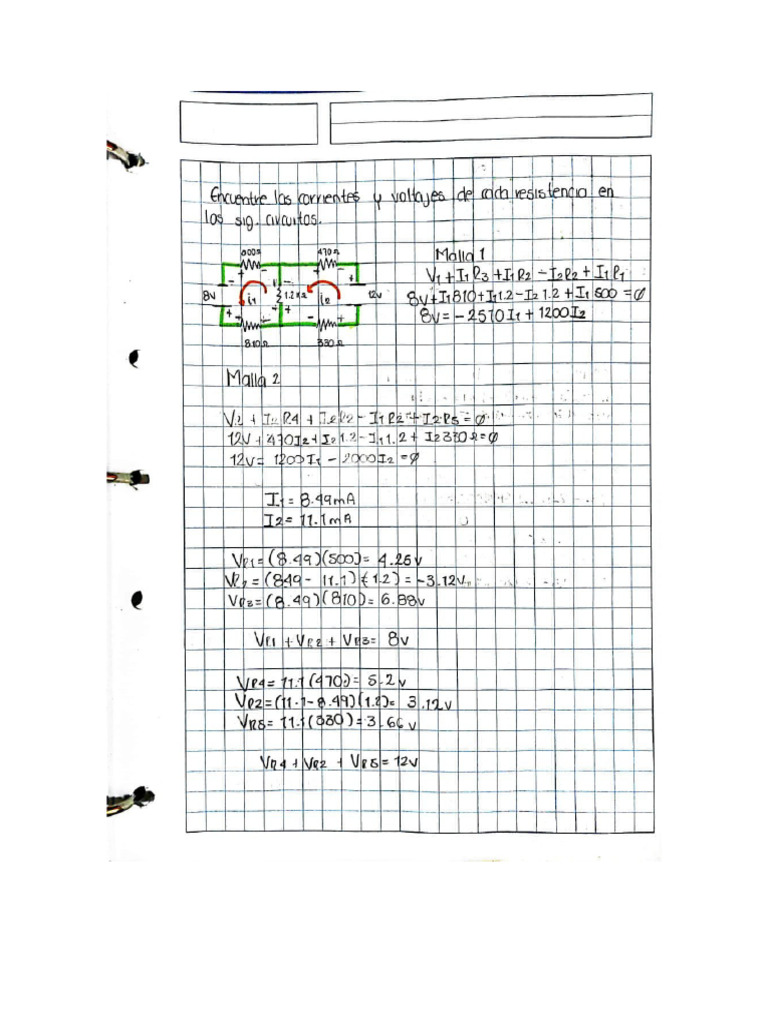 Encuentre las corrientes y voltajes de cada resistencia en
los sig. circuitos.
470Ω
8V
i1
1.2KΩ
i2
12V
810Ω
330Ω
Malla 1
V1 + I1R3 + I1R2 - I2R2 + I1R1
8V + I1810 + I11.2 - I21.2 + I1500 = Ø
8V = -2510I1 + 1200I2
Malla 2
V2 + I2R4 + I2R2 - I1R2 + I2R5 = Ø
12V + 470I2 + I21.2 - I11.2 + I2330Ω = Ø
12V = 1200I1 - 2000I2 = Ø
I1 = 8.49mA
I2 = 11.1mA
VR1 = (8.49)(500) = 4.25V
VR2 = (849 - 11.1)(1.2) = -3.12V
VR3 = (8.49)(810) = 6.88V
VR1 + VR2 + VR3 = 8V
VR4 = 11.1(470) = 5.2V
VR2 = (11.1 - 8.49)(1.2) = 3.12V
VR5 = 11.1(330) = 3.66V
VR4 + VR2 + VR5 = 12V